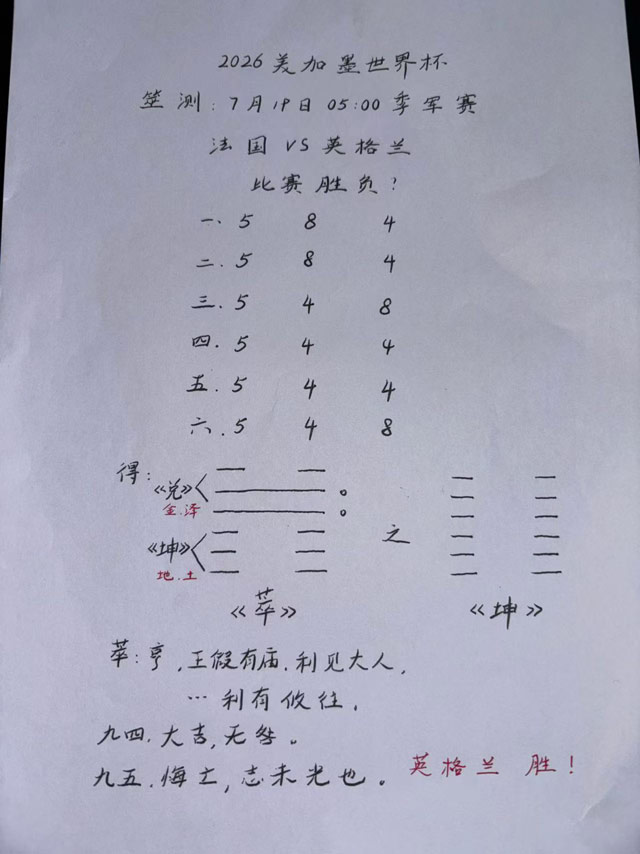 2026美加墨世界杯
筮测:7月19日 05:00季军赛
法国 VS 英格兰
比赛胜负?
一.5 8 4
二.5 8 4
三.5 4 8
四.5 4 4
五.5 4 4
六.5 4 8
得:
《兑》
金.泽
《坤》
地.土
之
《萃》
《坤》
萃:亨,王假有庙.利见大人,
…利有攸往.
九四.大吉,无咎。
九五.悔亡,志未光也。
英格兰 胜!